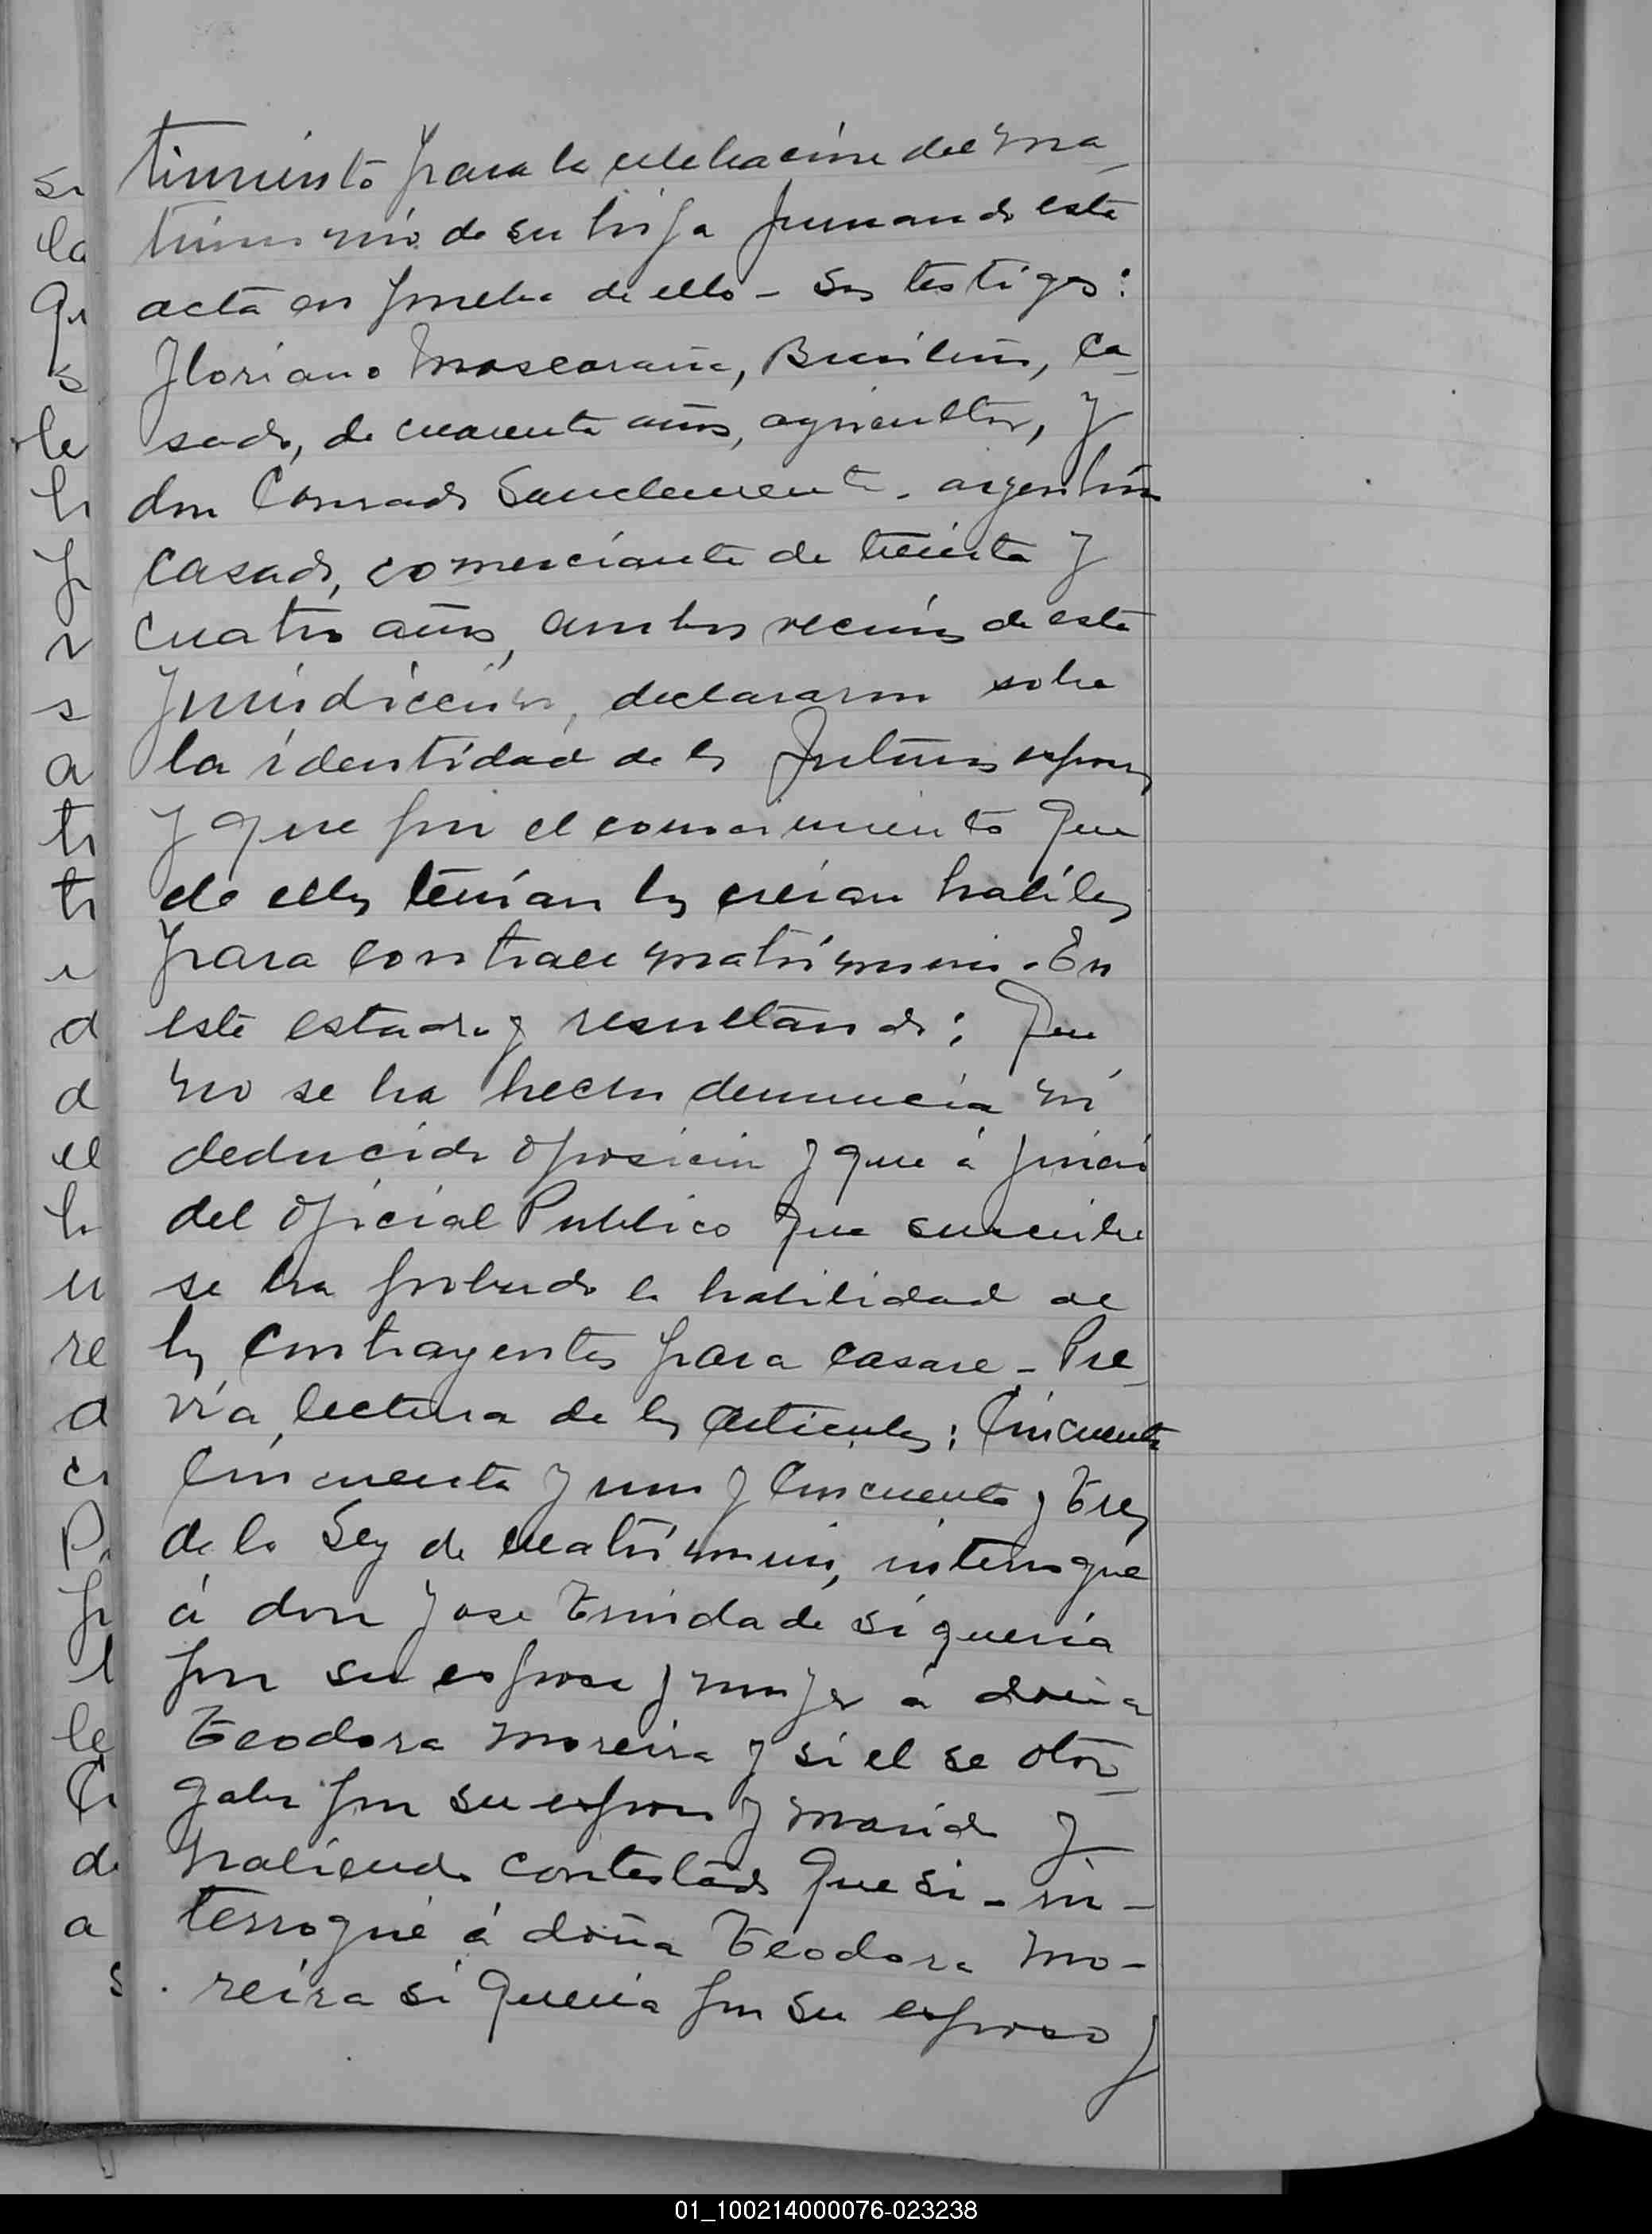 timiento para la celebración del ma-
trimonio de su hija firmando esta
acta en prueba de ello - Los testigos:
Floriano Mascaraña, Brasilero, ca-
sado, de cuarenta años, agricultor, y
don Conrado Sanclemente, argentino
casado, comerciante de treinta y
cuatro años, ambos vecinos de esta
Jurisdicción, declararon sobre
la identidad de los futuros esposos
y que por el conocimiento que
de ellos tenían los creían habiles
para contraer matrimonio. En
este estado y resultando: Que
no se ha hecho denuncia ni
deducido oposición y que á juicio
del Oficial Publico que suscribe
se ha probado la habilidad de
los contrayentes para casarse - Pre-
via lectura de los articulos: Cincuenta
Cincuenta y uno y Cincuenta y tres
de la Ley de Matrimonio, interrogué
á don Jose Trindade si quería
por su esposa y mujer a doña
Teodora Moreira y si el se otor-
gaba por su esposo y marido y
habiendo contestado que si - in-
terrogué á doña Teodora Mo-
reira si quería por su esposo y
si
la
qu
s
le
h
p
r
s
a
tr
tr
i
d
d
el
h
u
re
d
ci
P
p
l
le
C
d
a
s
01_100214000076-023238